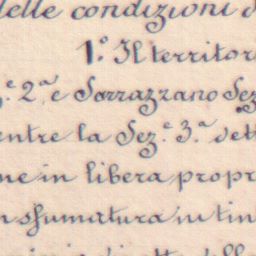 delle condizioni d
1.° Il territor
z.e 2.a, e Sarrazzano Sez
entre la Sez.e 3.a dett
ne in libera propr
n sfumatura in tin